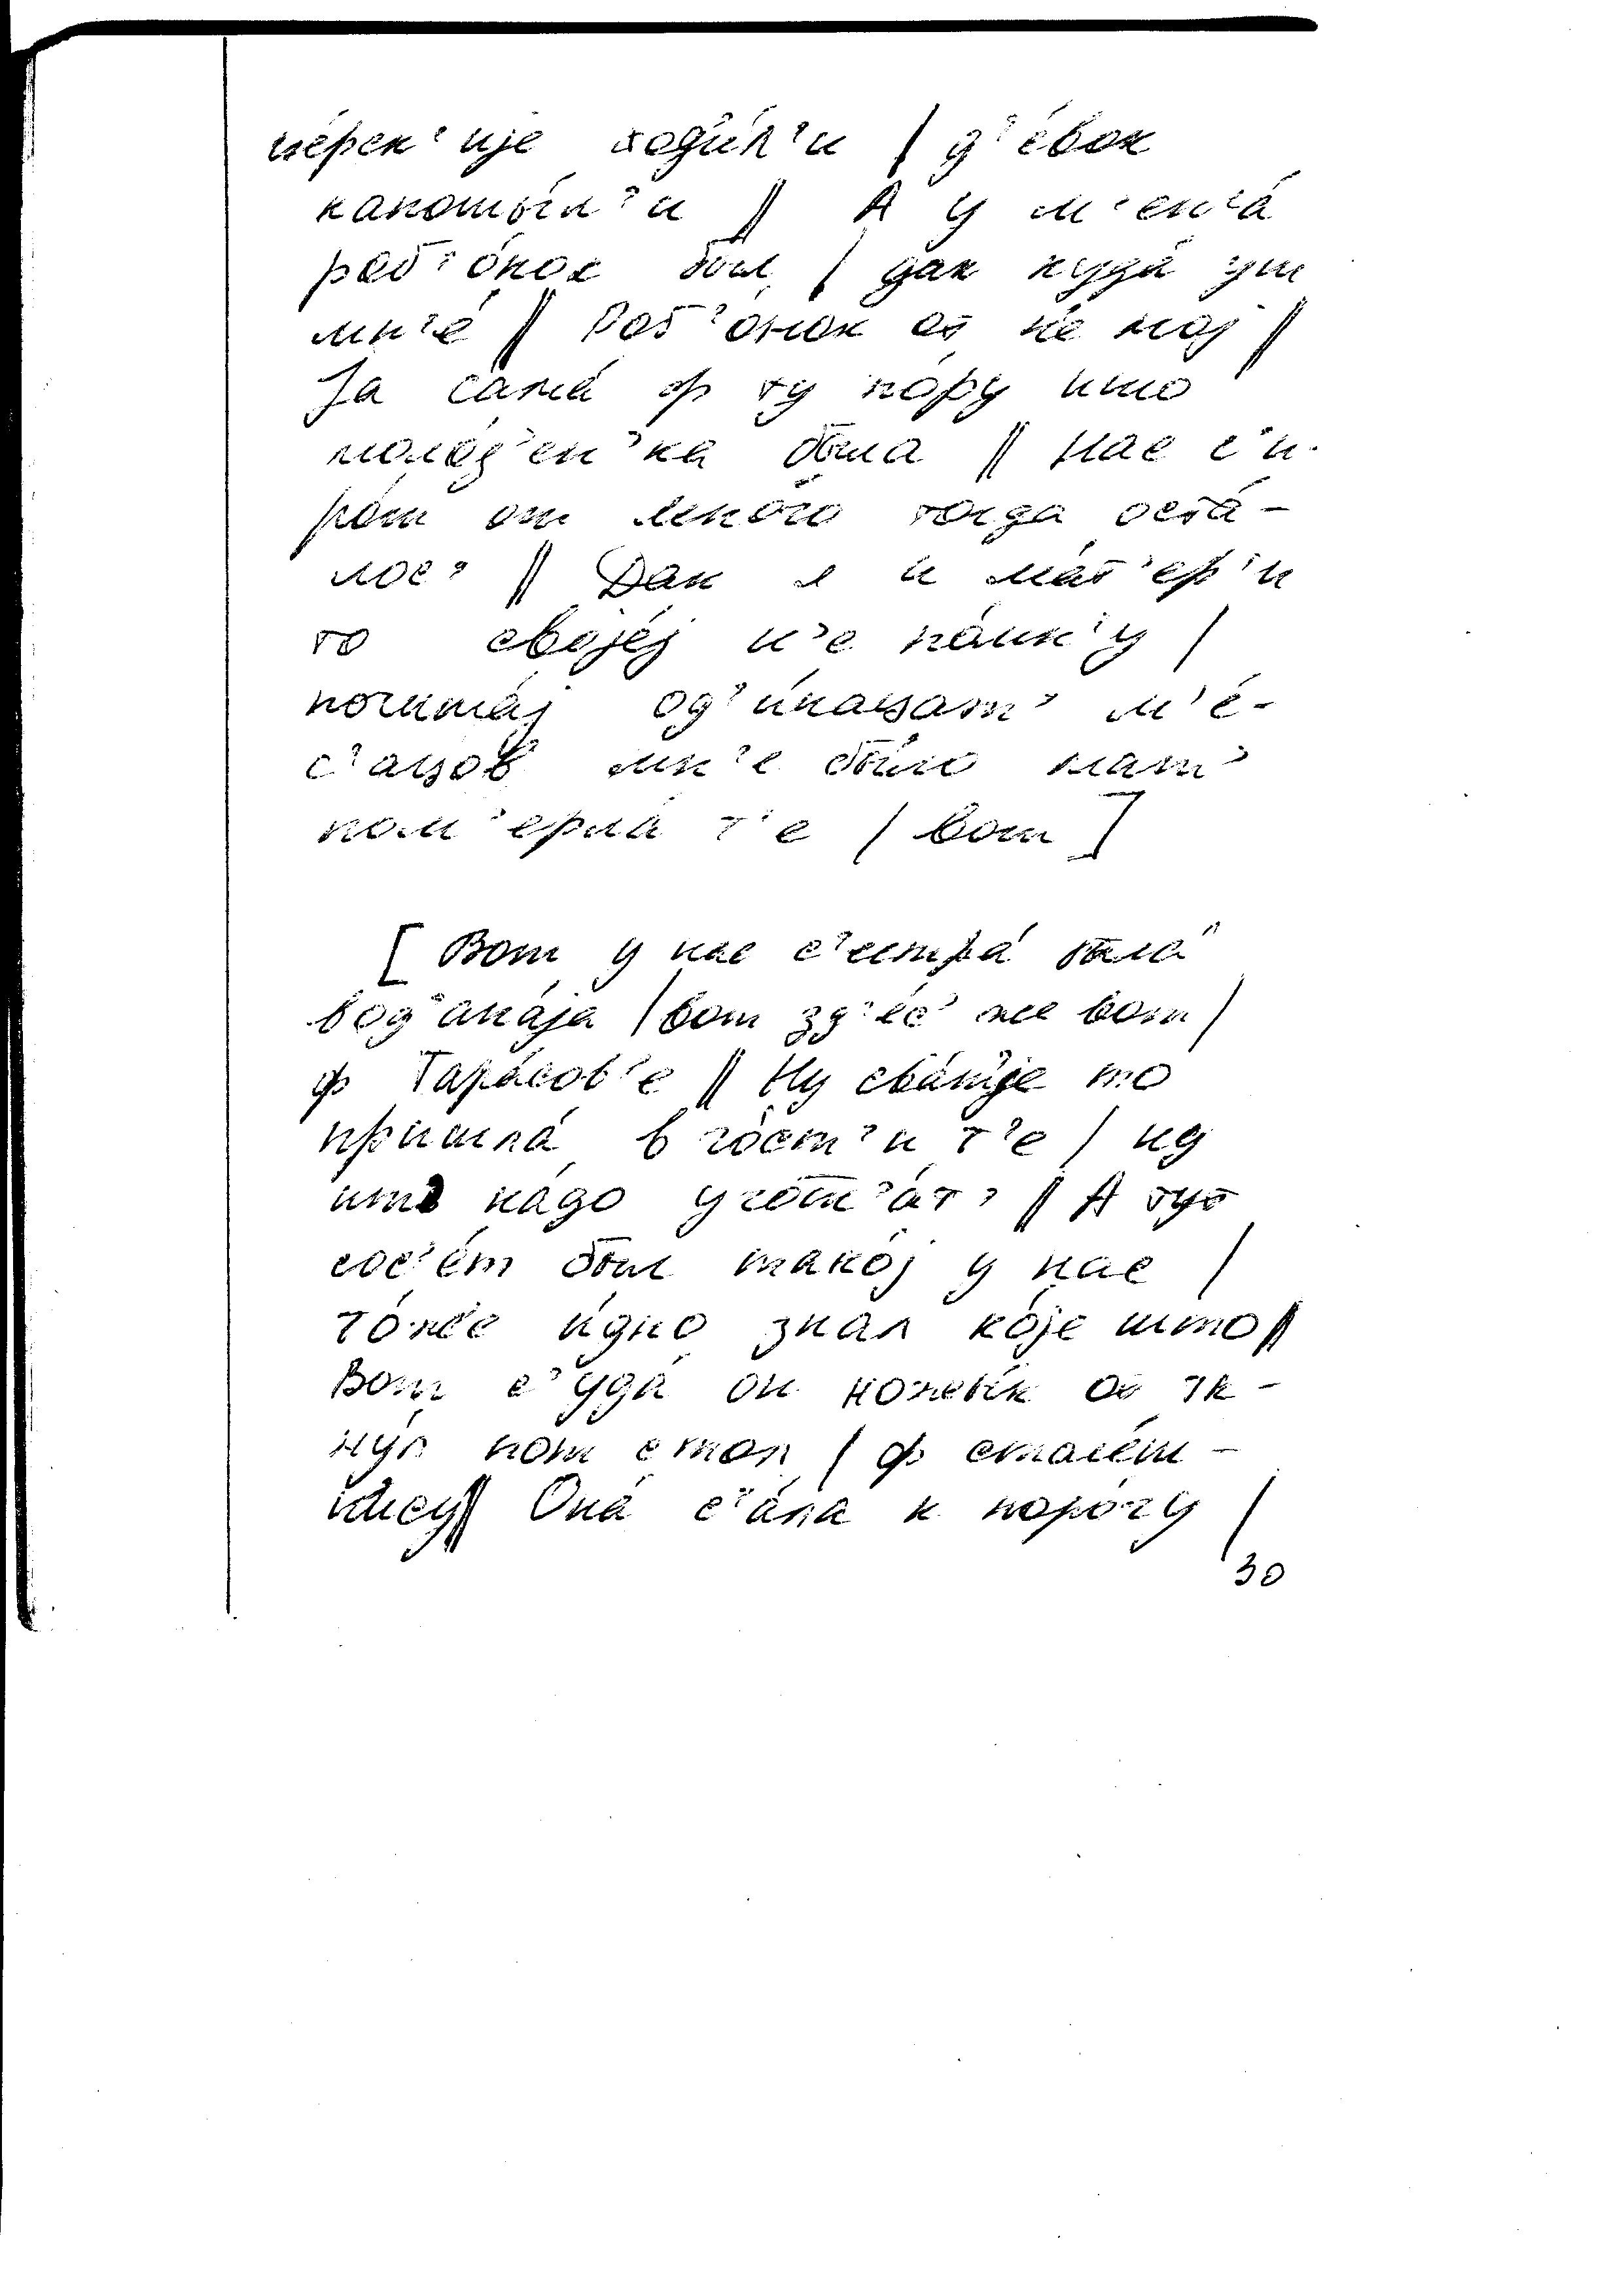 ходи́л'и | д'е́вок
капоты́л'и || А у м'ен'а́
роб'о́нок был | дак куда́ уш
мн'е́ || Роб'о́нок от н'е мој ||
Ја сама́ ф ту по́ру ишо
моло́д'ен'ка была || Нас с'и-
ро́т от мно́го тогда оста́-
лос' || Дак я и ма́т'ер'и
то својéј н'е по́мн'у |
почита́ј од'и́нацат' м'е́-
с'ацов мн'е бы́ло мат'
пом'ерла́ т'е | вот]
[Вот у нас с'естра́ была́
вод'ана́ја | вот зд'е́с' же вот |
ф Тара́сов'е || Ну сва́т'је то
пришла́ в го́ст'и т'е | ид
ишо на́до угошш'а́т' || А тут
сос'е́т был тако́ј у нас |
то́же и́дно знал ко́је што ||
Вот с'уда́ он ножы́к от тк-
ну́л пот стол | ф столе́ш-
ницу || Она́ с'а́ла к поро́гу |
30